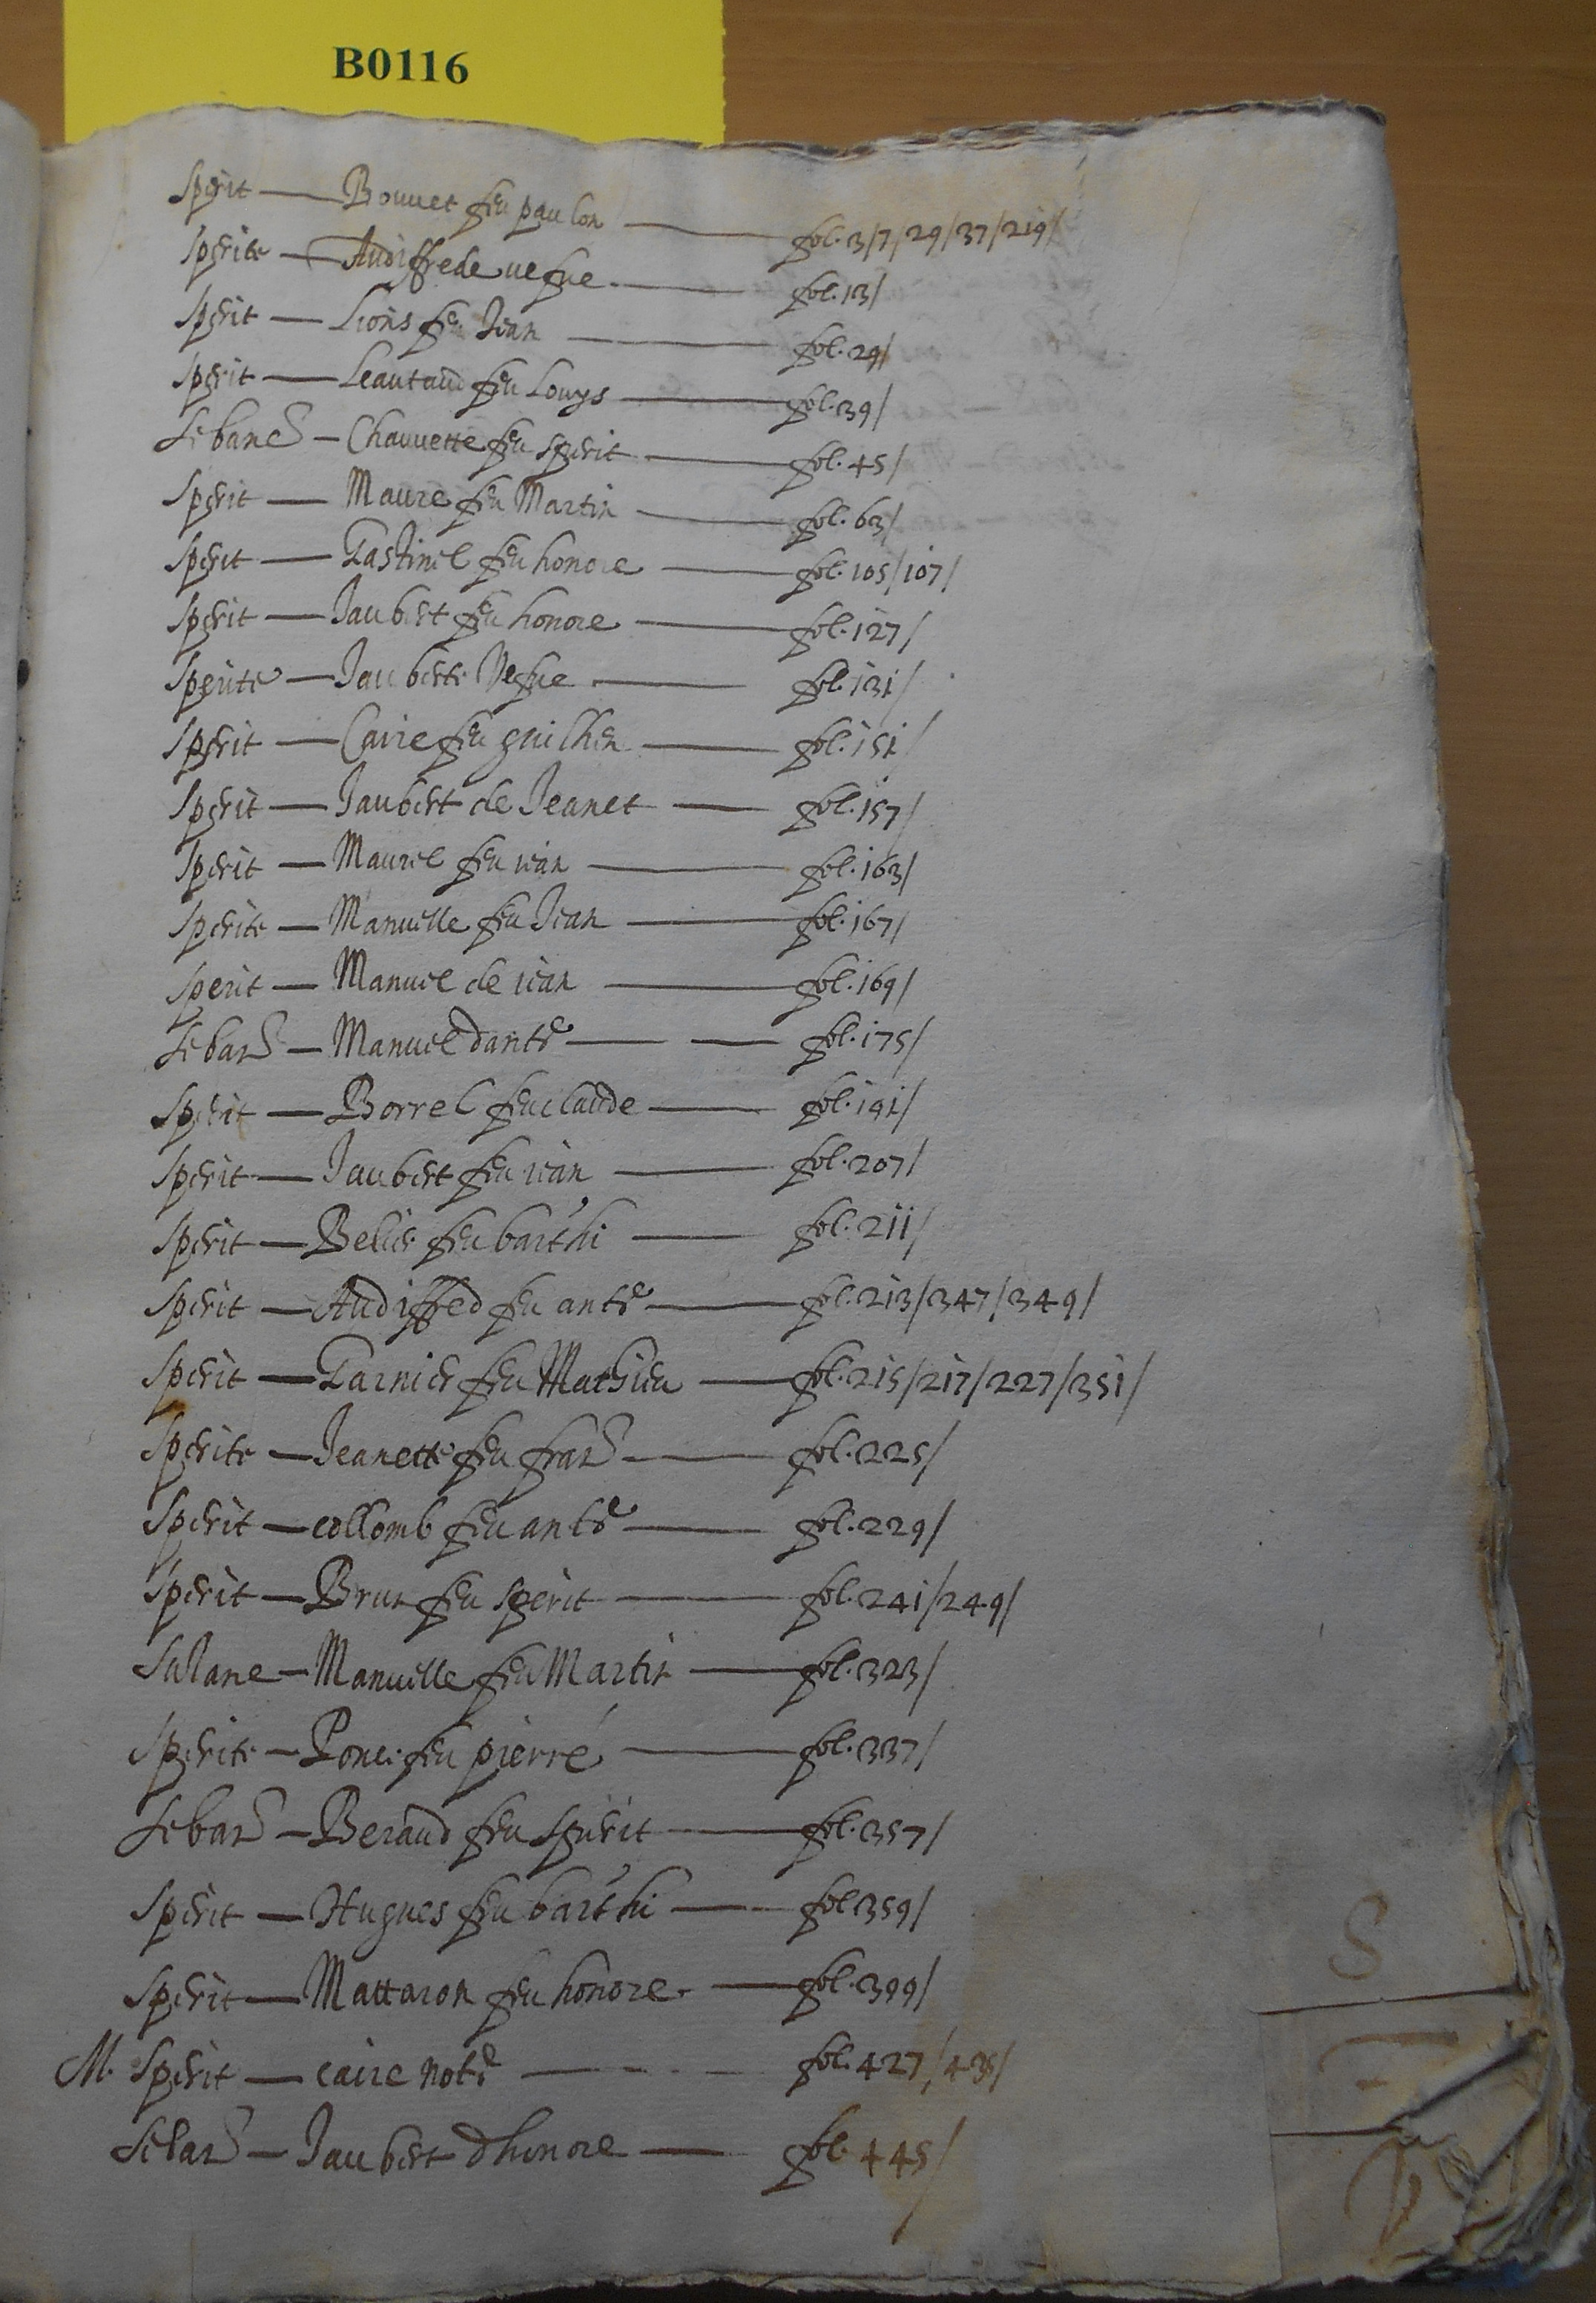 B0116
Sperit — Bouuet feu paulon — fol. 3/7/29/37/219/
Sperite — Audiffrede uefue — fol. 13/
Sperit — Lions feu Jean — fol. 29/
Sperit — Leautaud feu Louys — fol. 39/
Sebane — Chauuette feu sperit — fol. 45/
Sperit — Maure feu Martin — fol. 63/
Sperit — Gastinel feu honore — fol. 105/107/
Sperit — Jaubert feu honore — fol. 127/
Sperite — Jauberte Vefue — fol. 131/
Sperit — Caire feu guilhen — fol. 151/
Sperit — Jaubert de Jeanet — fol. 157/
Sperit — Maurel feu iean — fol. 163/
Sperite — Manuelle feu Jean — fol. 167/
Sperit — Manuel de iean — fol. 169/
Seban — Manuel dante — fol. 175/
Sperit — Borrel feu claude — fol. 191/
Sperit — Jaubert feu iean — fol. 207/
Sperit — Belier feu barthi — fol. 211/
Sperit — Audiffred feu ante — fol. 213/347/349/
Sperit — Garnier feu Mathieu — fol. 215/217/227/351/
Sperite — Jeanette feu fran — fol. 225/
Sperit — collomb feu ante — fol. 229/
Sperit — Brun feu sperit — fol. 241/249/
Manuelle feu Martin — fol. 323/
Sperite — Ponce feu pierre — fol. 337/
Seban — Beraud feu sperit — fol. 357/
Sperit — Hugues feu barthi — fol. 359/
Sperit — Mattaron feu honore — fol. 399/
M. Sperit — caire note — fol. 427/435/
Seban — Jaubert dhonore — fol. 445/
S
T
V